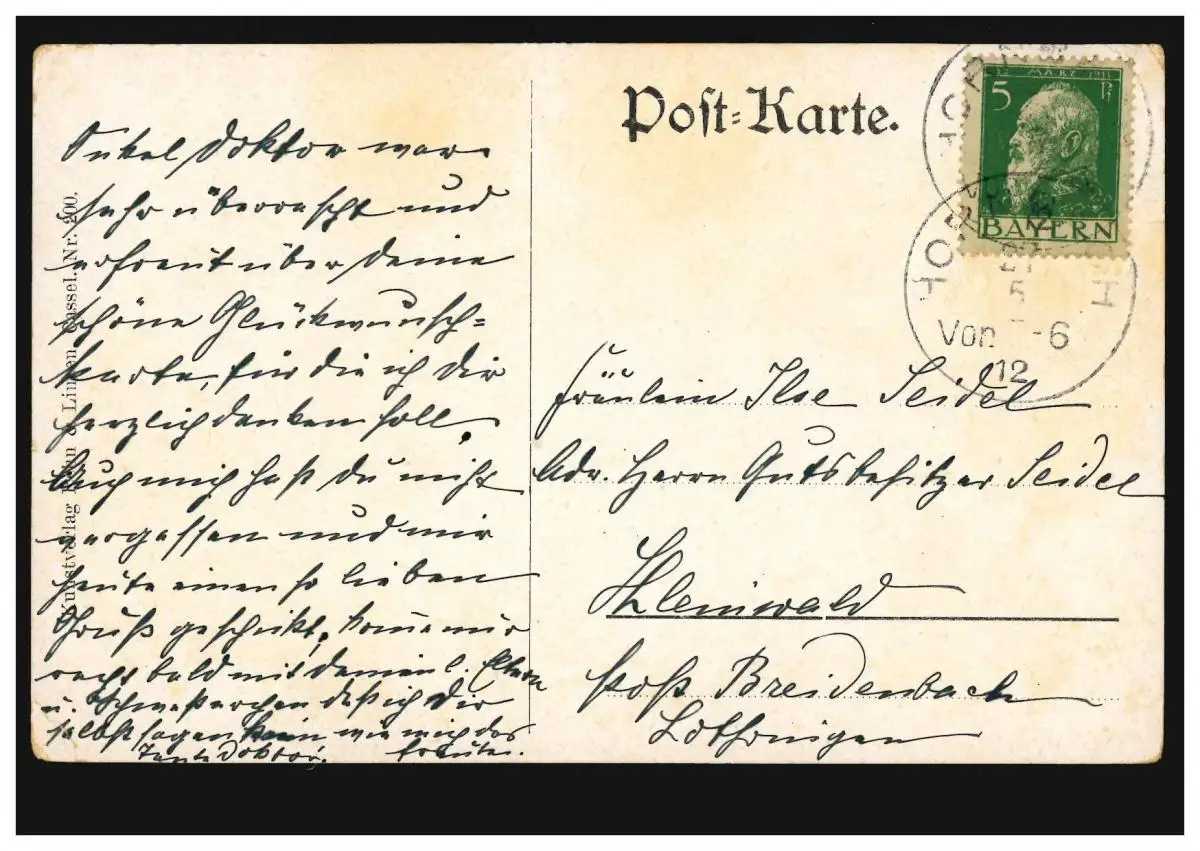 Post-Karte.
12. MÄRZ 1911
5 Pf
BAYERN
HORNBACH
HORNBACH
21
5
Vor. -6
12
Onkel Doktor war
sehr überrascht und
erfreut über Deine
schöne Glückwunsch-
karte, für die ich Dir
herzlich danken soll.
Auch mich hast Du nicht
vergessen und mir
heute einen so lieben
Gruß geschickt, komme nur
recht bald mit Deinen l. Eltern
u. Schwesterchen daß ich Dir
selbst sagen kann wie mich das
freute.
Tante Doktor.
Fräulein Ilse Seidel
Adr. Herrn Gutsbesitzer Seidel
Kleinwald
Post Breidenbach
Lothringen
Kunstverlag Linnen Cassel. Nr. 200.